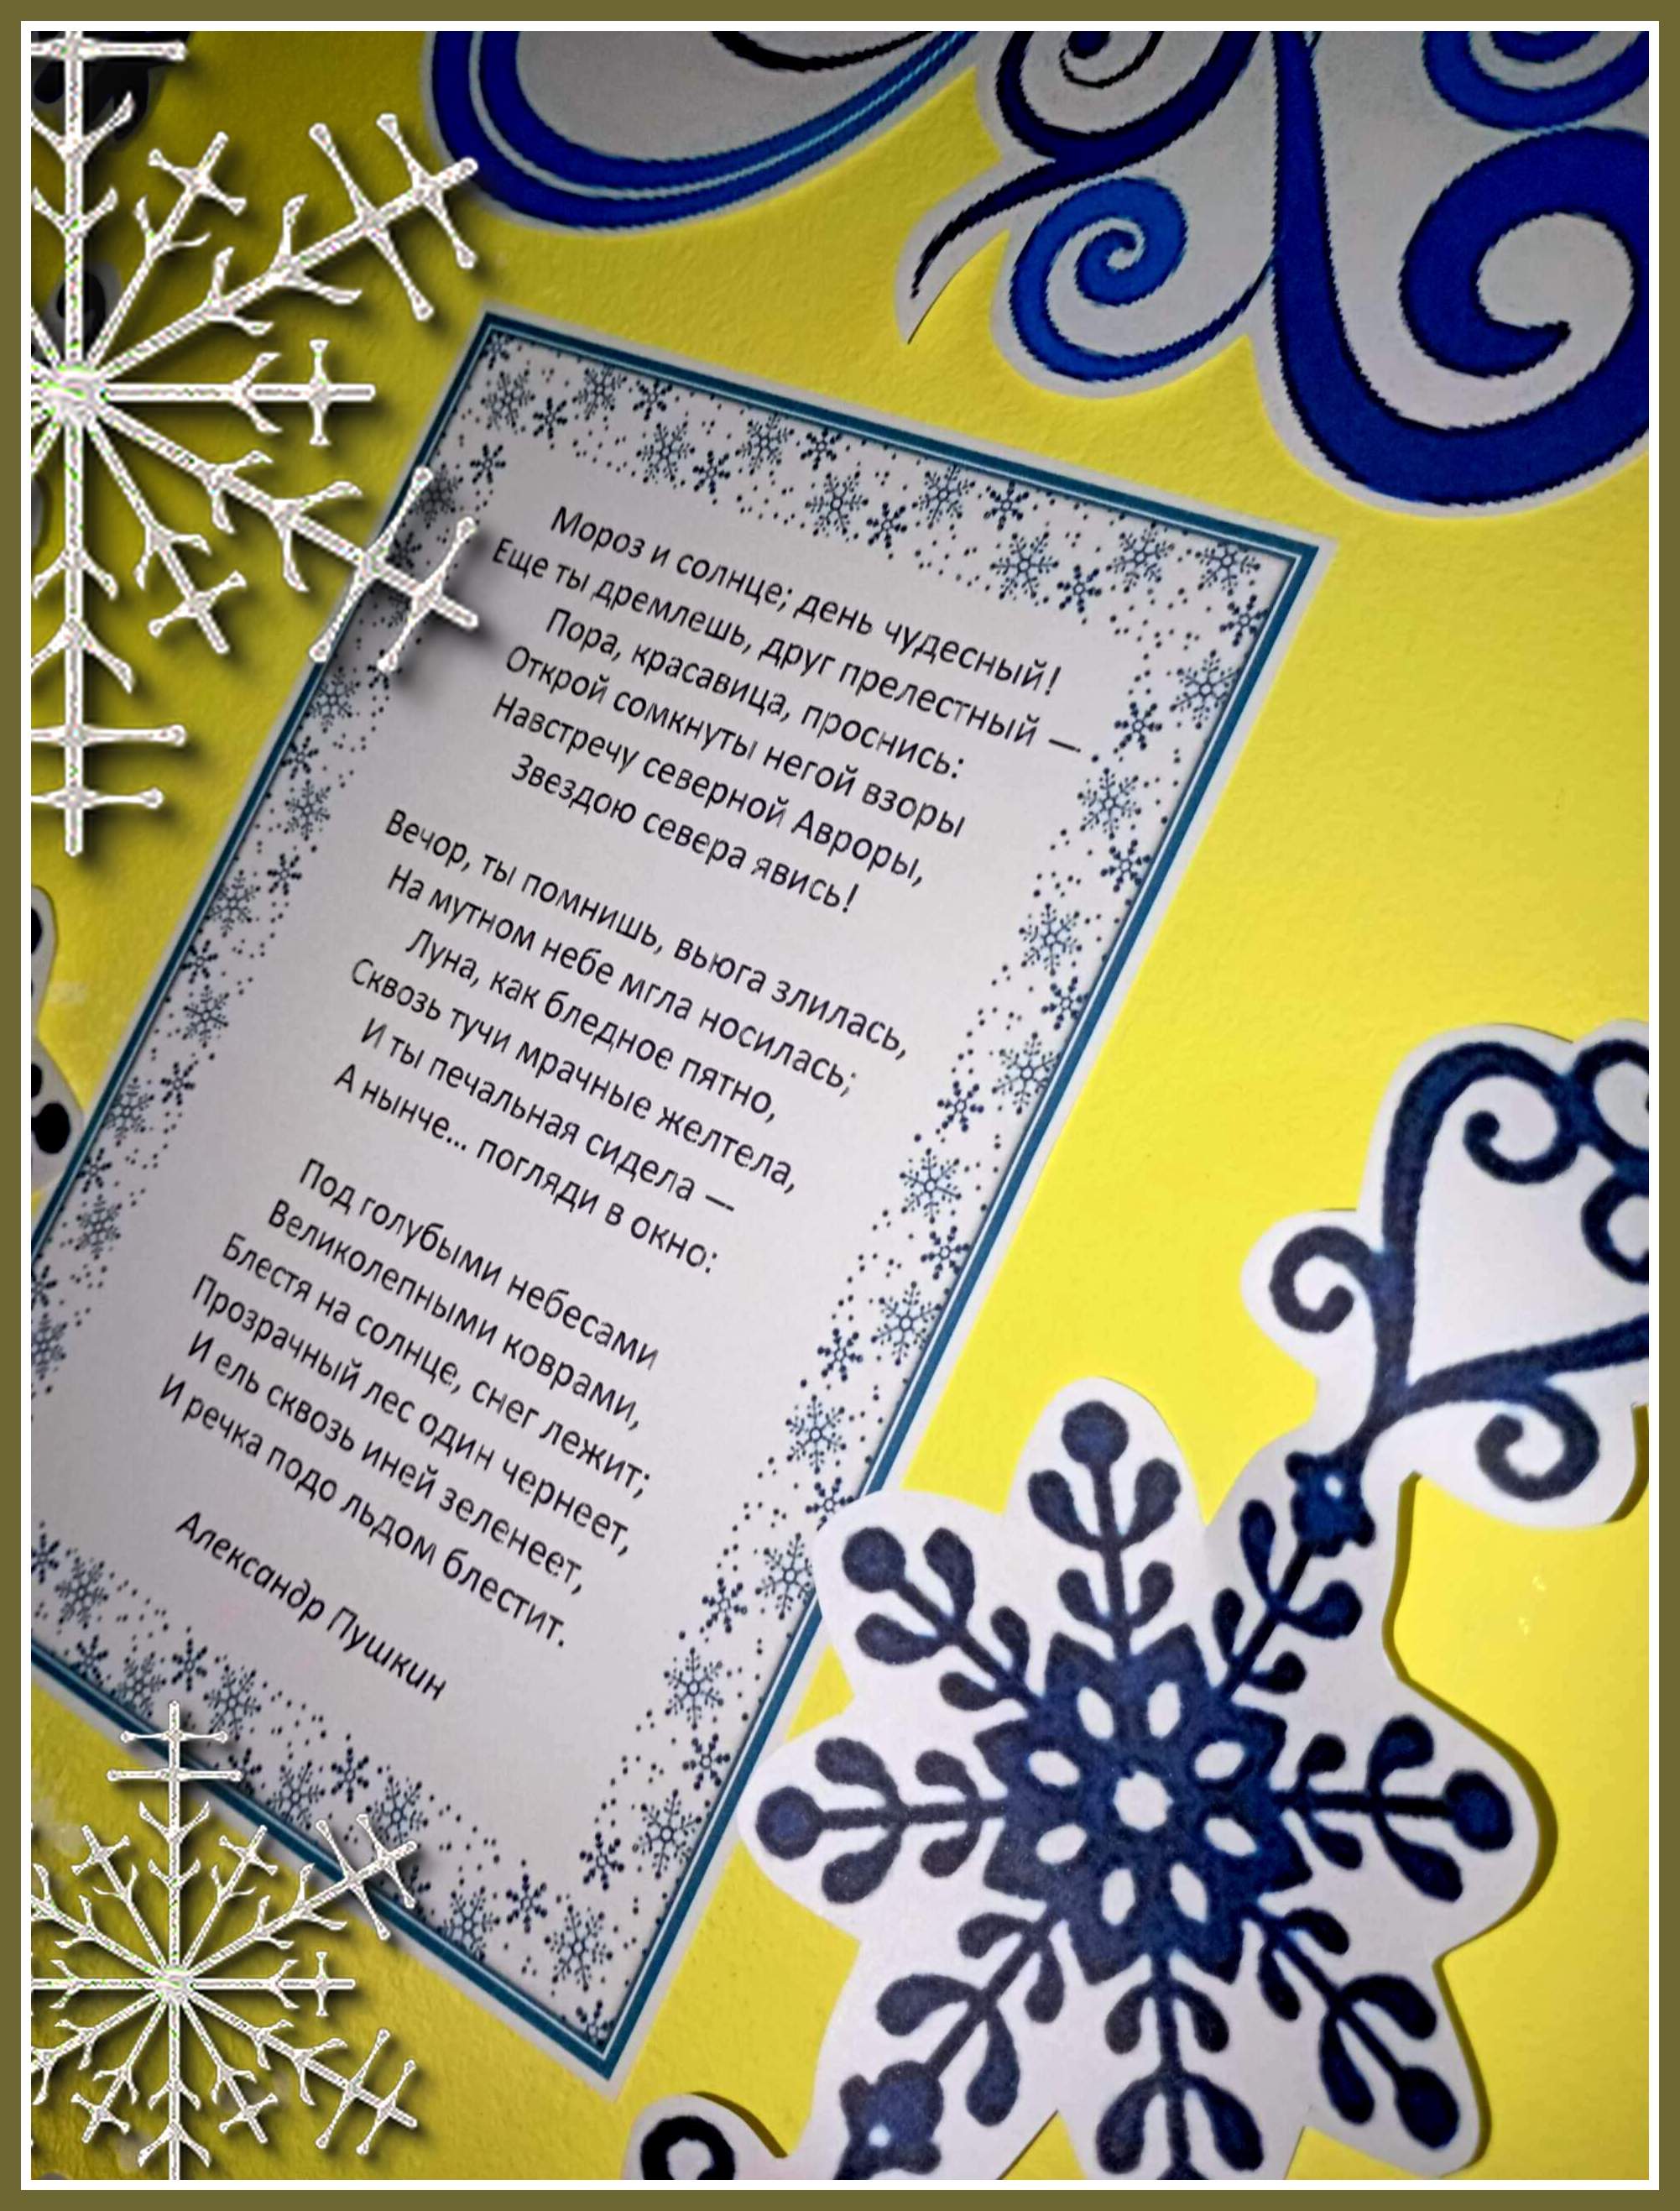 Мороз и солнце; день чудесный!
Еще ты дремлешь, друг прелестный —
Пора, красавица, проснись:
Открой сомкнуты негой взоры
Навстречу северной Авроры,
Звездою севера явись!
Вечор, ты помнишь, вьюга злилась,
На мутном небе мгла носилась;
Луна, как бледное пятно,
Сквозь тучи мрачные желтела,
И ты печальная сидела —
А нынче... погляди в окно:
Под голубыми небесами
Великолепными коврами,
Блестя на солнце, снег лежит;
Прозрачный лес один чернеет,
И ель сквозь иней зеленеет,
И речка подо льдом блестит.
Александр Пушкин